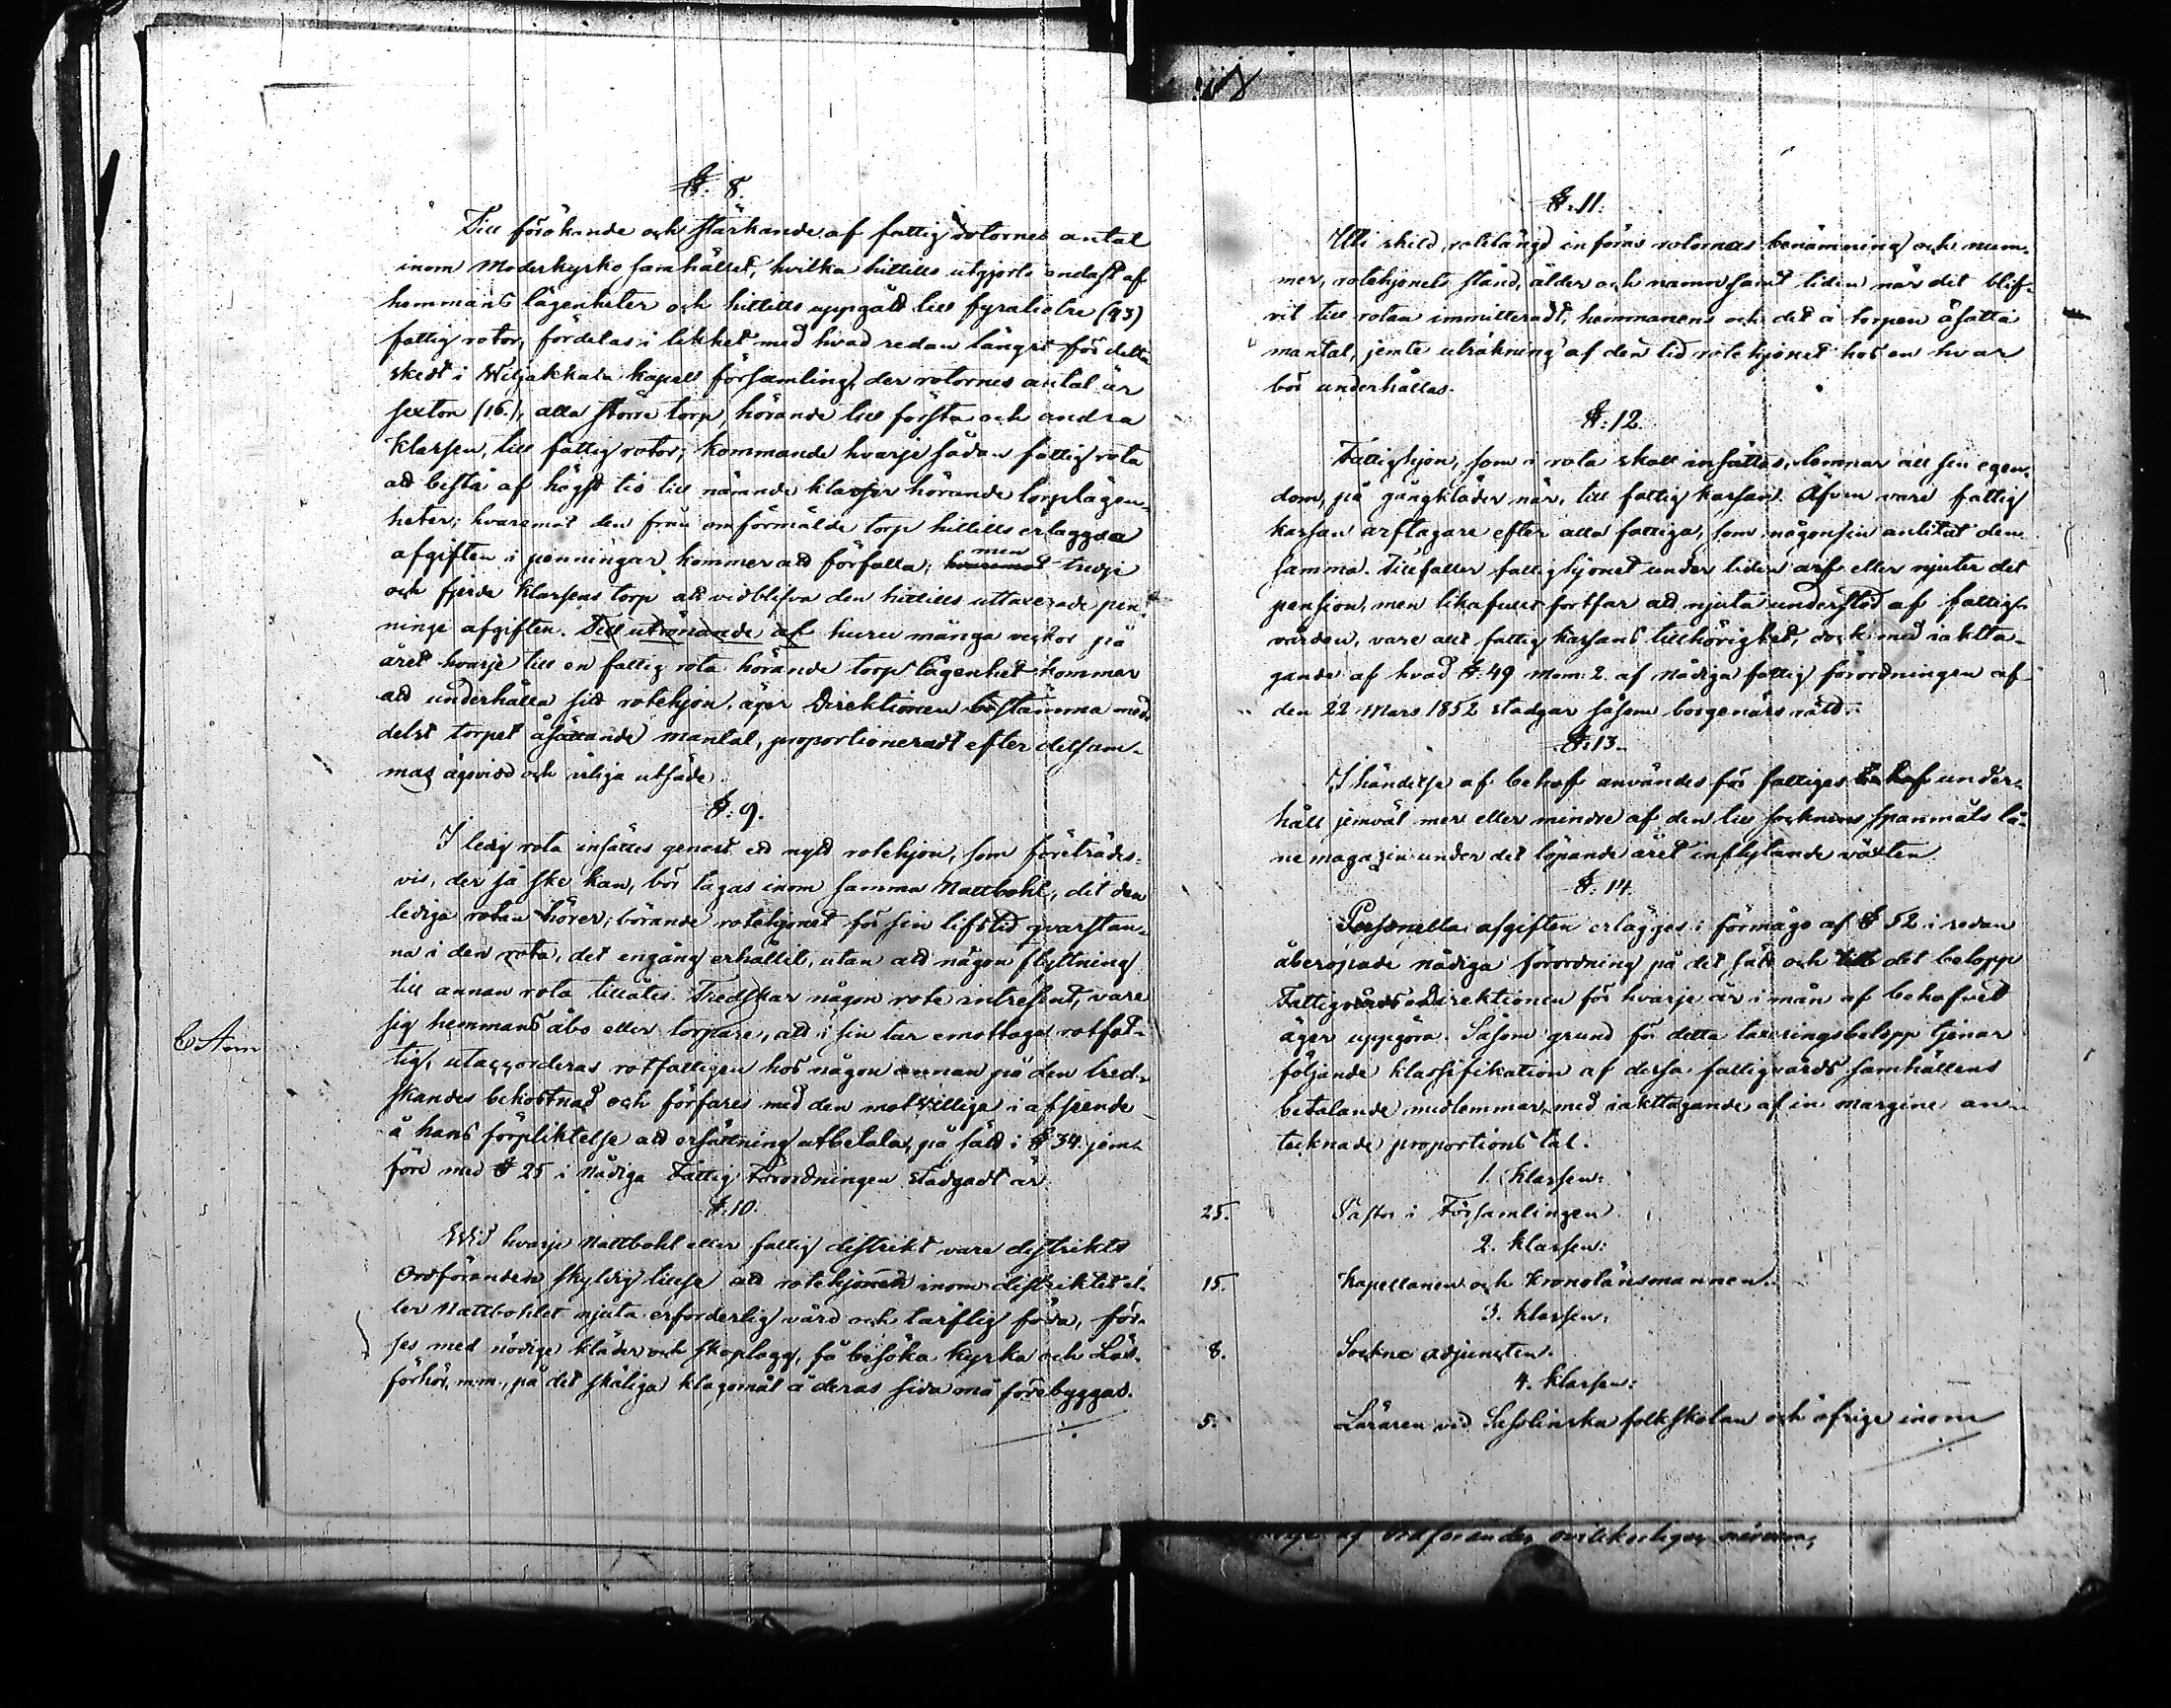 §. 8.
Till förökande och stärkande af fattig rotornes antal
inom Moderkyrko samhället, hvilka hittills utgjorts endast af
hemmans lägenheter och hittills uppgått till fyratiotre (43)
fattig rotor, fördelas i likhet med hvad redan längre för detta
skedt i Wiljakkala kapell församling, der rotornes antal är
sexton (16.), alla större torp, hörande till första och andra
Klassen, till fattig rotor; kommande hvarje sådan fattig rota
att bestå af högst tio till nämnde klasser hörande torplägen-
heter; hvaremot den från omförmälde torp hittills erlaggda
afgiften i penningar kommer att förfalla; hvaremot men tredje
och fjerde Klassens torp att vidblifva den hittills uttaxerade pen-
ninge afgiften. Till utrönande af huru många veckor på
året hvarje till en fattig rota hörande torp lägenhet kommer
att underhålla sitt rotehjon, äger Direktionen bestämma med-
delst torpet åsättande mantal, proportioneradt efter detsam-
mas ägovidd och årliga utsäde.
§. 9.
I ledig rota insättes genast ett nytt rotehjon, som företrädes-
vis, der så ske kan, bör tagas inom samma Nattbohl, dit den
lediga rotan hörer; börande rotehjonet för sin lifstid qvarstan-
na i den rota, det engång erhållit, utan att någon flyttning
till annan rota tillåtes. Tredskar någon rote intressent, vare
sig hemmans åbo eller torpare, att i sin tur emottaga rotfat-
tig, utackorderas rotfattigen hos någon annan på den tred-
skandes bekostnad och förfares med den motvillige i afseende
å hans förpliktelse att ersättning utbetala, på sätt i § 34. jem-
förd med § 25 i Nådiga Fattig Förordningen stadgadt är.
§. 10.
Wid hvarje Nattbohl eller fattig distrikt vare distrikts
Ordföranden skyldig tillse att rotehjonen inom distriktet el-
ler Nattbohlet njuta erforderlig vård och tarflig föda, för-
ses med nödige kläder och skoplagg, få besöka Kyrka och Läs-
förhör, m.m., på det skäliga klagomål å deras sida må förebyggas.
§. 11.
Uti skild rotelängd införas rotornas benämning och num-
mer, rotehjonets stånd, ålder och namn samt tiden när det blif-
vit till rotan immitteradt, hemmanens och det å torpen åsatta
mantal, jemte uträkning af den tid rotehjonet hos en hvar
bör underhållas.
§. 12.
Fattighjon, som i rota skall insättas, lemnar all sin egen-
dom, på gångkläder när, till fattig kassan. Äfven vare fattig
kassan arftagare efter alla fattiga, som någonsin anlitat den
samma. Tillfaller fattighjonet under tiden arf eller njuter det
pension, men likafullt fortfar att njuta understöd af fattig-
vården, vare allt fattig kassans tillhörighet, dock med iaktta-
gande af hvad §. 49 Mom: 2 af Nådiga fattig förordningen af
den 22 Mars 1852 stadgar såsom borgenärs rätt.
§. 13.
I händelse af behof användes för fattiges behof under-
håll jemväl mer eller mindre af den till socknens spanmåls lå-
ne magazin under det löpande året inflytande växten.
§. 14.
Personella afgiften erlägges i förmågo af § 52 i redan
åberopade nådiga förordning på det sätt och till det belopp
Fattigvårds Direktionen för hvarje år i mån af behofvet
äger uppgöra. Såsom grund för detta taxeringsbelopp tjenar
följande klassifikation af dessa fattigvårds samhällens
betalande medlemmar med iakttagande af in margine an-
tecknade proportions tal.
1. Klassen:
25. Pastor i Församlingen.
2. Klassen:
15. Kapellanen och Kronolänsmannen.
3. Klassen.
8. Sockne adjuncten.
4. Klassen:
5. Läraren vid folkskolan och öfrige inom
af Ordföranden